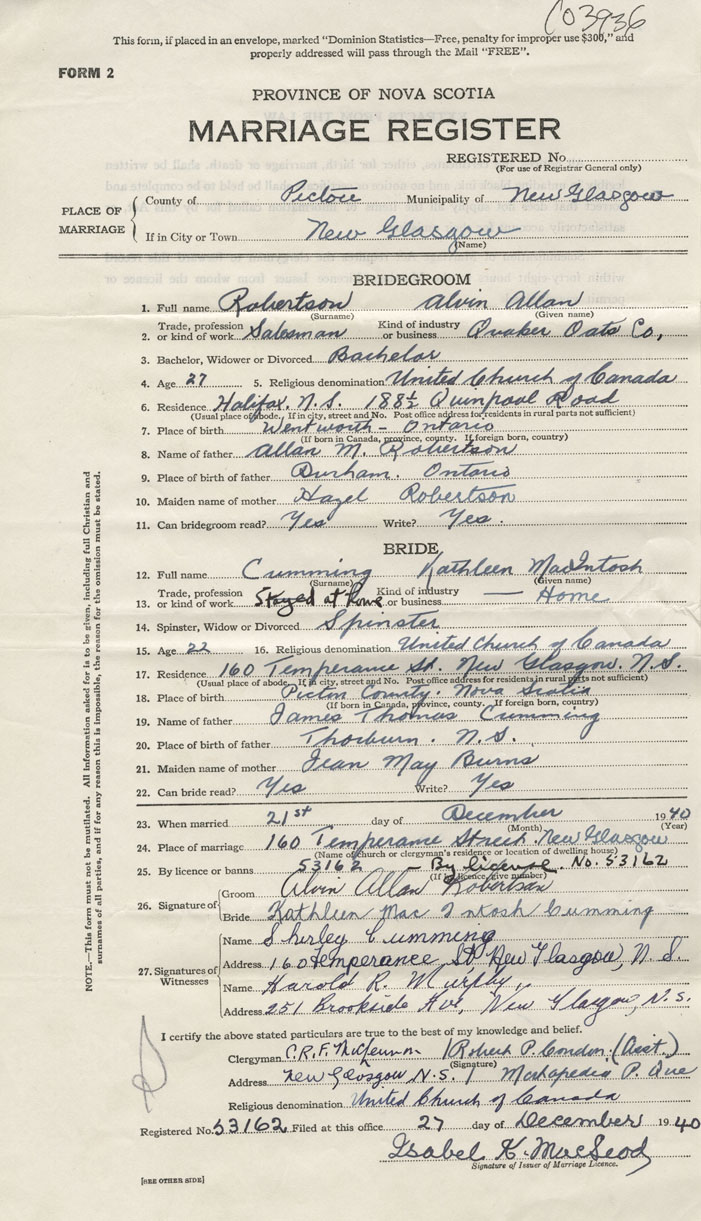 C03936
This form, if placed in an envelope, marked "Dominion Statistics—Free, penalty for improper use $300," and
properly addressed will pass through the Mail "FREE".
FORM 2
PROVINCE OF NOVA SCOTIA
MARRIAGE REGISTER
REGISTERED No.
(For use of Registrar General only)
PLACE OF MARRIAGE
County of Pictou Municipality of New Glasgow
If in City or Town New Glasgow
(Name)
BRIDEGROOM
1. Full name Robertson Alvin Allan
(Surname) (Given name)
2. Trade, profession or kind of work Salesman Kind of industry or business Quaker Oats Co,
3. Bachelor, Widower or Divorced Bachelor
4. Age 27 5. Religious denomination United Church of Canada
6. Residence Halifax. N.S. 188½ Quinpool Road
(Usual place of abode. If in city, street and No. Post office address for residents in rural parts not sufficient)
7. Place of birth Wentworth - Ontario
(If born in Canada, province, county. If foreign born, country)
8. Name of father Allan M. Robertson
9. Place of birth of father Durham. Ontario
10. Maiden name of mother Hazel Robertson
11. Can bridegroom read? Yes Write? Yes.
BRIDE
12. Full name Cumming Kathleen MacIntosh
(Surname) (Given name)
13. Trade, profession or kind of work Stayed at Home Kind of industry or business — Home
14. Spinster, Widow or Divorced Spinster
15. Age 22 16. Religious denomination United Church of Canada
17. Residence 160 Temperance St. New Glasgow. N.S.
(Usual place of abode. If in city, street and No. Post office address for residents in rural parts not sufficient)
18. Place of birth Pictou County. Nova Scotia
(If born in Canada, province, county. If foreign born, country)
19. Name of father James Thomas Cumming
20. Place of birth of father Thorburn. N.S.
21. Maiden name of mother Jean May Burns
22. Can bride read? Yes Write? Yes
23. When married 21st day of December 1940
(Month) (Year)
24. Place of marriage 160 Temperance Street. New Glasgow
(Name of church or clergyman's residence or location of dwelling house)
25. By licence or banns 53162 - By license. No. 53162
(If by licence, give number)
26. Signature of
Groom Alvin Allan Robertson
Bride Kathleen Mac Intosh Cumming
27. Signatures of Witnesses
Name Shirley Cumming
Address 160 Temperance St, New Glasgow, N.S.
Name Harold R. Murphy,
Address 251 Brookside Ave, New Glasgow, N.S.
I certify the above stated particulars are true to the best of my knowledge and belief.
Clergyman C.R.F. Robert P. Condon. (Asst.)
(Signature)
Address New Glasgow N.S. / P. Que
Religious denomination United Church of Canada
Registered No. 53162 Filed at this office 27 day of December 1940
Isabel K. MacLeod
Signature of Issuer of Marriage Licence.
[SEE OTHER SIDE]
NOTE.—This form must not be mutilated. All information asked for is to be given, including full Christian and
surnames of all parties, and if for any reason this is impossible, the reason for the omission must be stated.